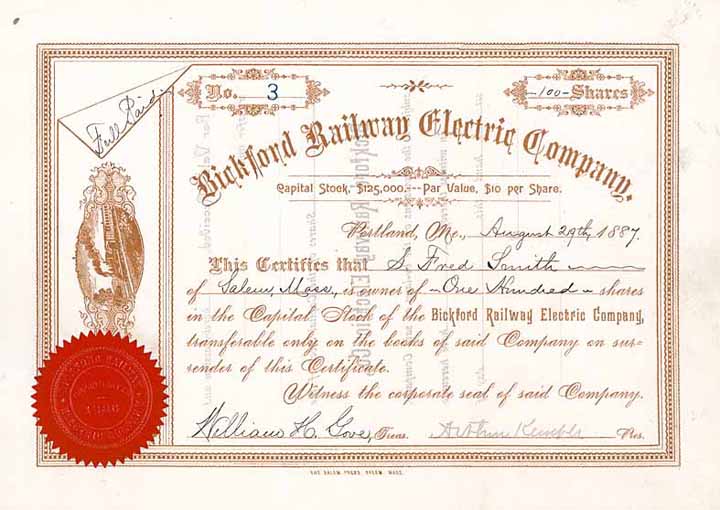 Full Paid.
No. 3
-100- Shares
Bickford Railway Electric Company.
Capital Stock, $125,000.--- Par Value, $10 per Share.
Portland, Me., August 29th, 1887.
This Certifies that S. Fred Smith
of Salem, Mass., is owner of - One Hundred - shares
in the Capital Stock of the Bickford Railway Electric Company,
transferable only on the books of said Company on sur-
render of this Certificate.
Witness the corporate seal of said Company.
William H. Gove, Treas. Arthur Pres.
THE SALEM PRESS, SALEM, MASS.
BICKFORD RAILWAY
ELECTRIC COMPANY
1886